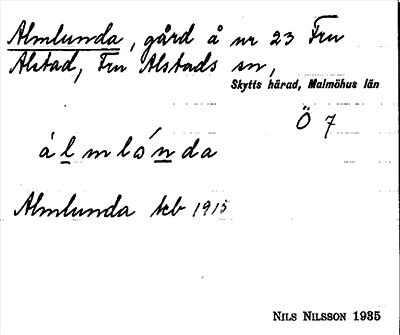 Almlunda, gård å nr 23 Fru
Alstad, Fru Alstads sn,
Skytts härad, Malmöhus län
Ö 7
álmlónda
Almlunda kb 1915
NILS NILSSON 1935